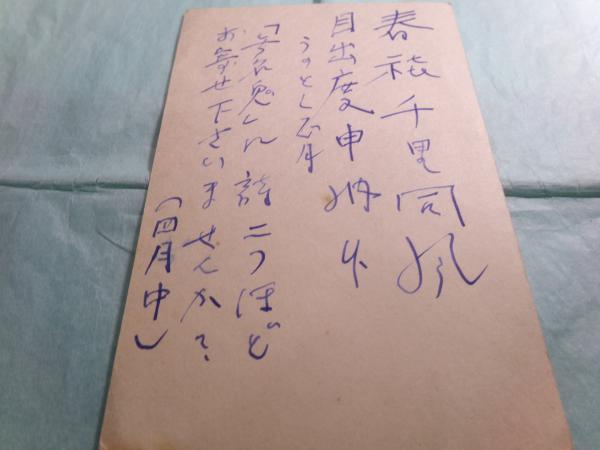 春祺千里同風
目出度申納候
うのとし正月
「無名鬼」に詩二つほど
お寄せ下さいませんか？
（四月中）